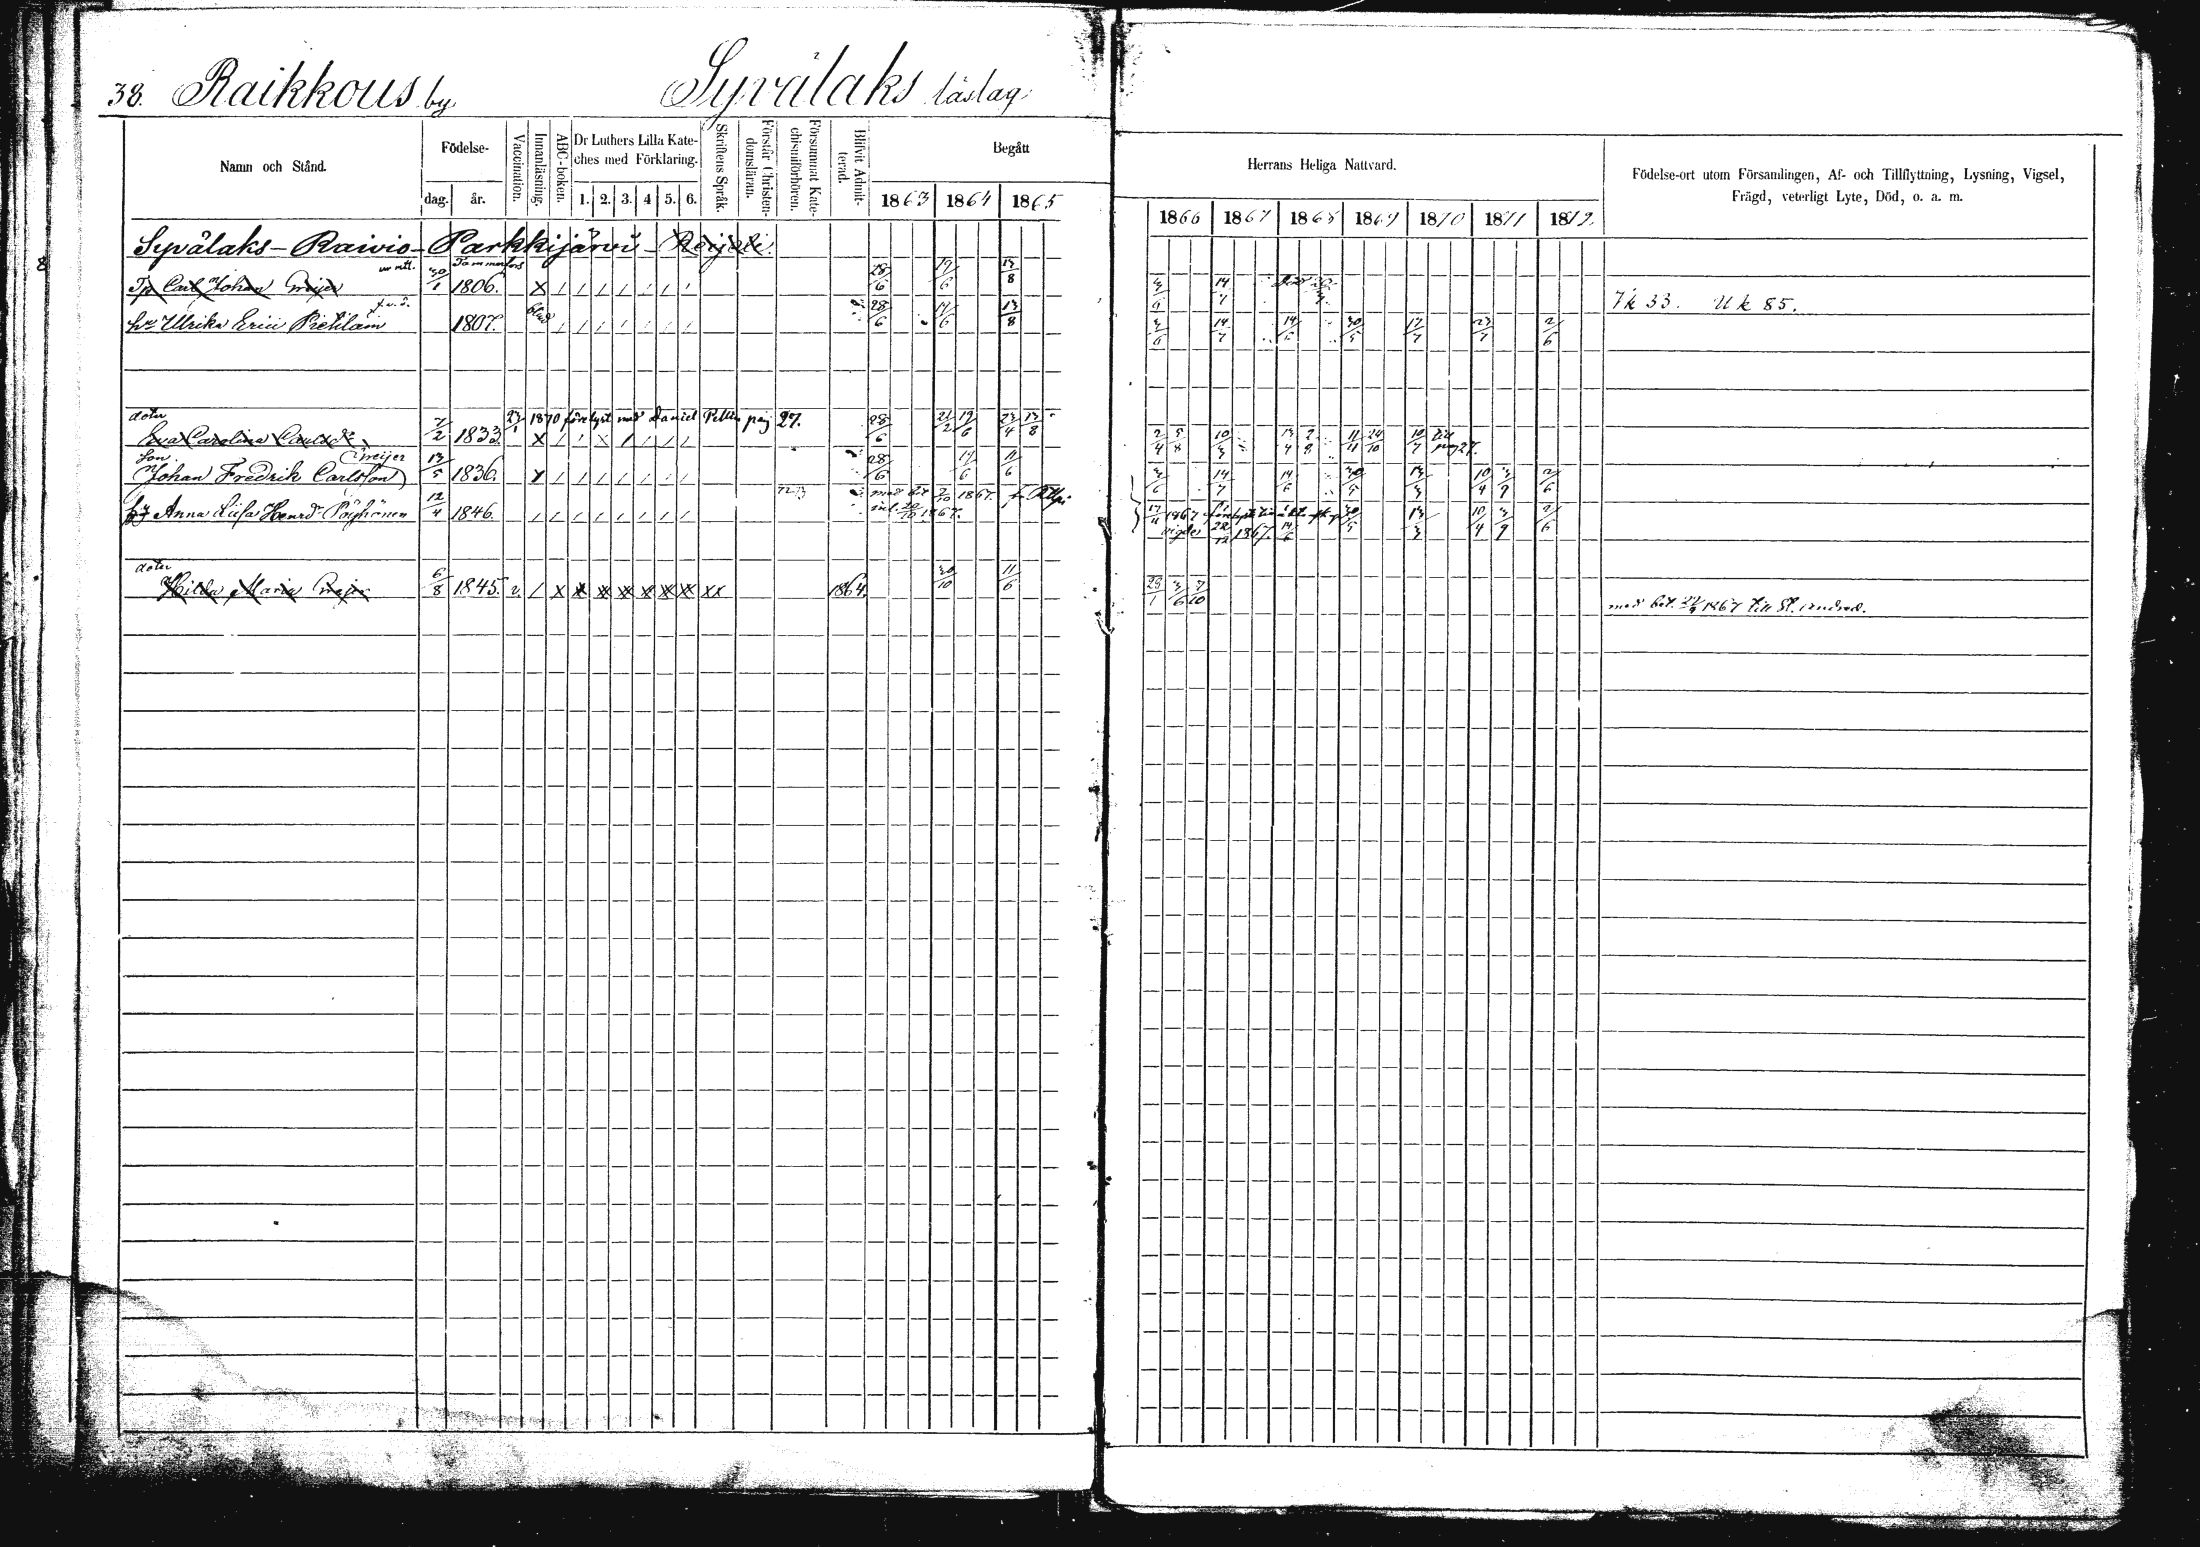 38. Raikkous by Syvälaks läslag
Namn och Stånd.
Födelse-
dag. år.
Vaccination.
Innanläsning.
ABC-boken.
Dr Luthers Lilla Kate-
ches med Förklaring.
1. 2. 3. 4 5. 6.
Skriftens Språk.
Förstår Christen-
domsläran.
Försummat Kate-
chismiförhören.
Blifvit Admit-
terad.
Begått
1863 1864 1865
Herrans Heliga Nattvard.
1866 1867 1868 1869 1870 1871 1872
Födelse-ort utom Församlingen, Af- och Tillflyttning, Lysning, Vigsel,
Frägd, veterligt Lyte, Död, o. a. m.
Syvälaks - Raivio - Parkkijärvi -
Tammerfors
Carl Johan Meijer 30/1 1806. 28/6 19/6 13/8 3/6 14/7
Ik 33. Uk 85.
hu Ulrika Erici 1807. blind 28/6 19/6 13/8 3/6 14/7 14/6 30/5 17/7 23/7 2/6
doter 23/1 1870 förelyst med Daniel Pellin pag 27.
Eva Carolina Carlsdr 7/2 1833. 28/6 21/2 19/6 23/4 13/8 10/7 till pag 27.
son Meijer
Johan Fredrik Carlsson 13/5 1836. 28/6 19/6 11/6 3/6 14/7 14/6 30/5 13/3 10/4 3/9 2/6
72-73 med bet 2/10 1867. f.
hu Anna Liisa Henrdr Pöyhönen 12/4 1846. inl. 20/10 1867. 17/11 1867 30/5 13/3 10/4 3/9 2/6
vigde 22/12 1867. 14/6
doter
Hilda Maria Meijer 6/8 1845. v. 1864. 30/10 11/6 29/1 3/6 7/10
med bet. 22/9 1867 till St. Andreæ.